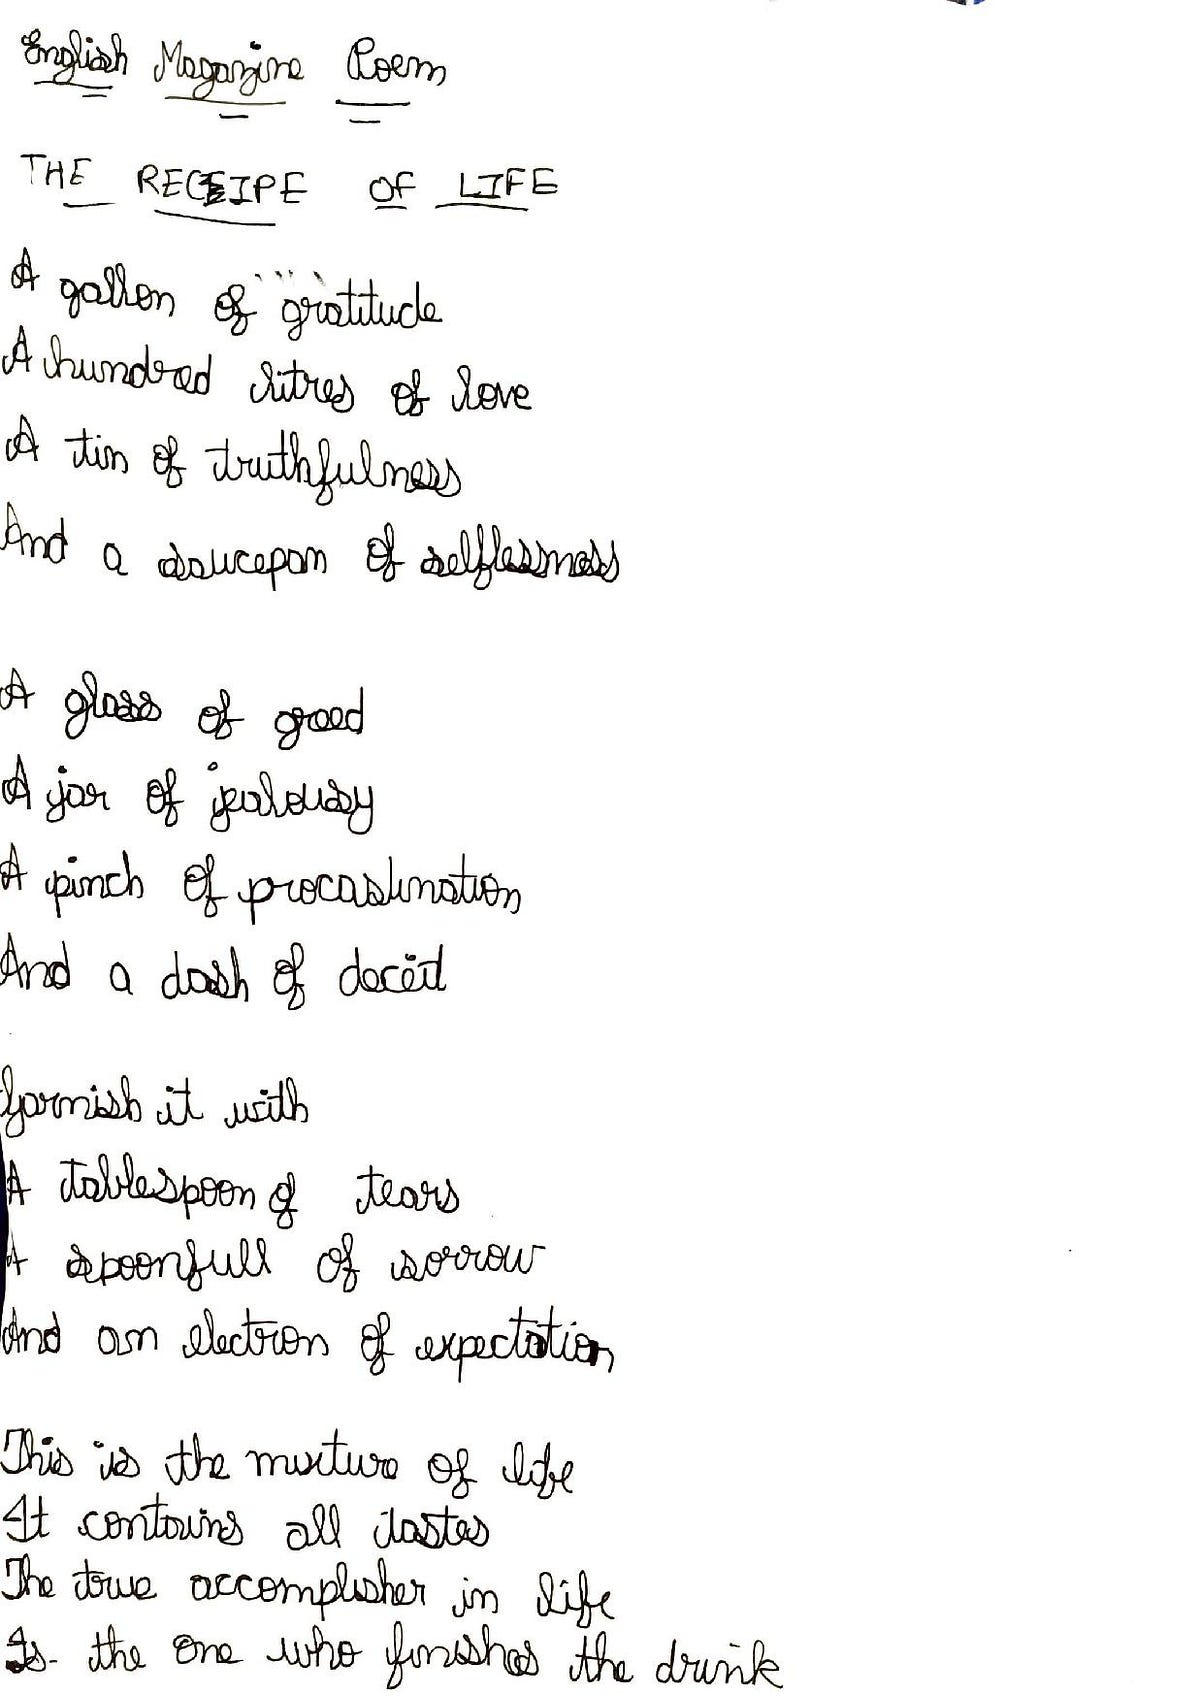 English Maganzine Poem
THE RECEIPE OF LIFE
A gallon of gratitude
A hundred litres of love
A tin of truthfulness
And a saucepan of selflessness
A glass of greed
A jar of jealousy
A pinch of procastination
And a dash of deceit
Garnish it with
A tablespoon of tears
A spoonfull of sorrow
And an electron of expectation
This is the mixture of life
It contains all tastes
The true accomplisher in life
Is the one who finishes the drink